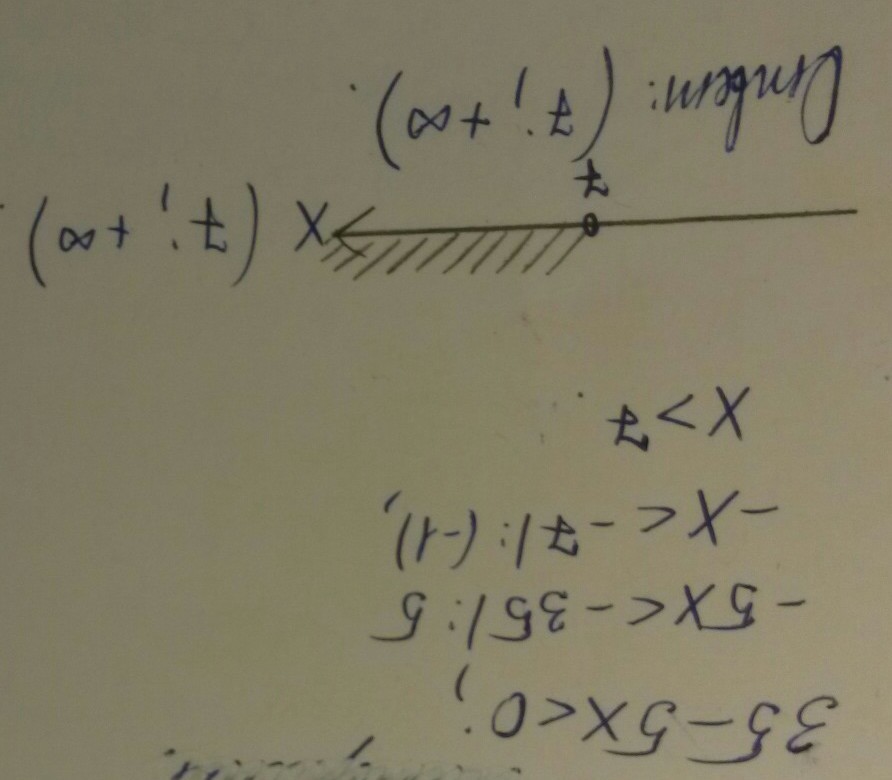 35-5x<0;
-5x<-35|:5
-x<-7|:(-1),
x>7
7 x (7;+∞)
Ответ: (7;+∞).